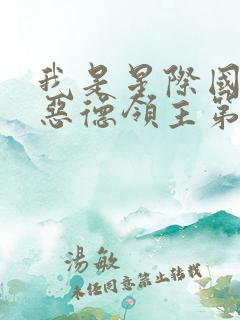 我是星際國
惡德領主第
湯敏
未經同意禁止轉載